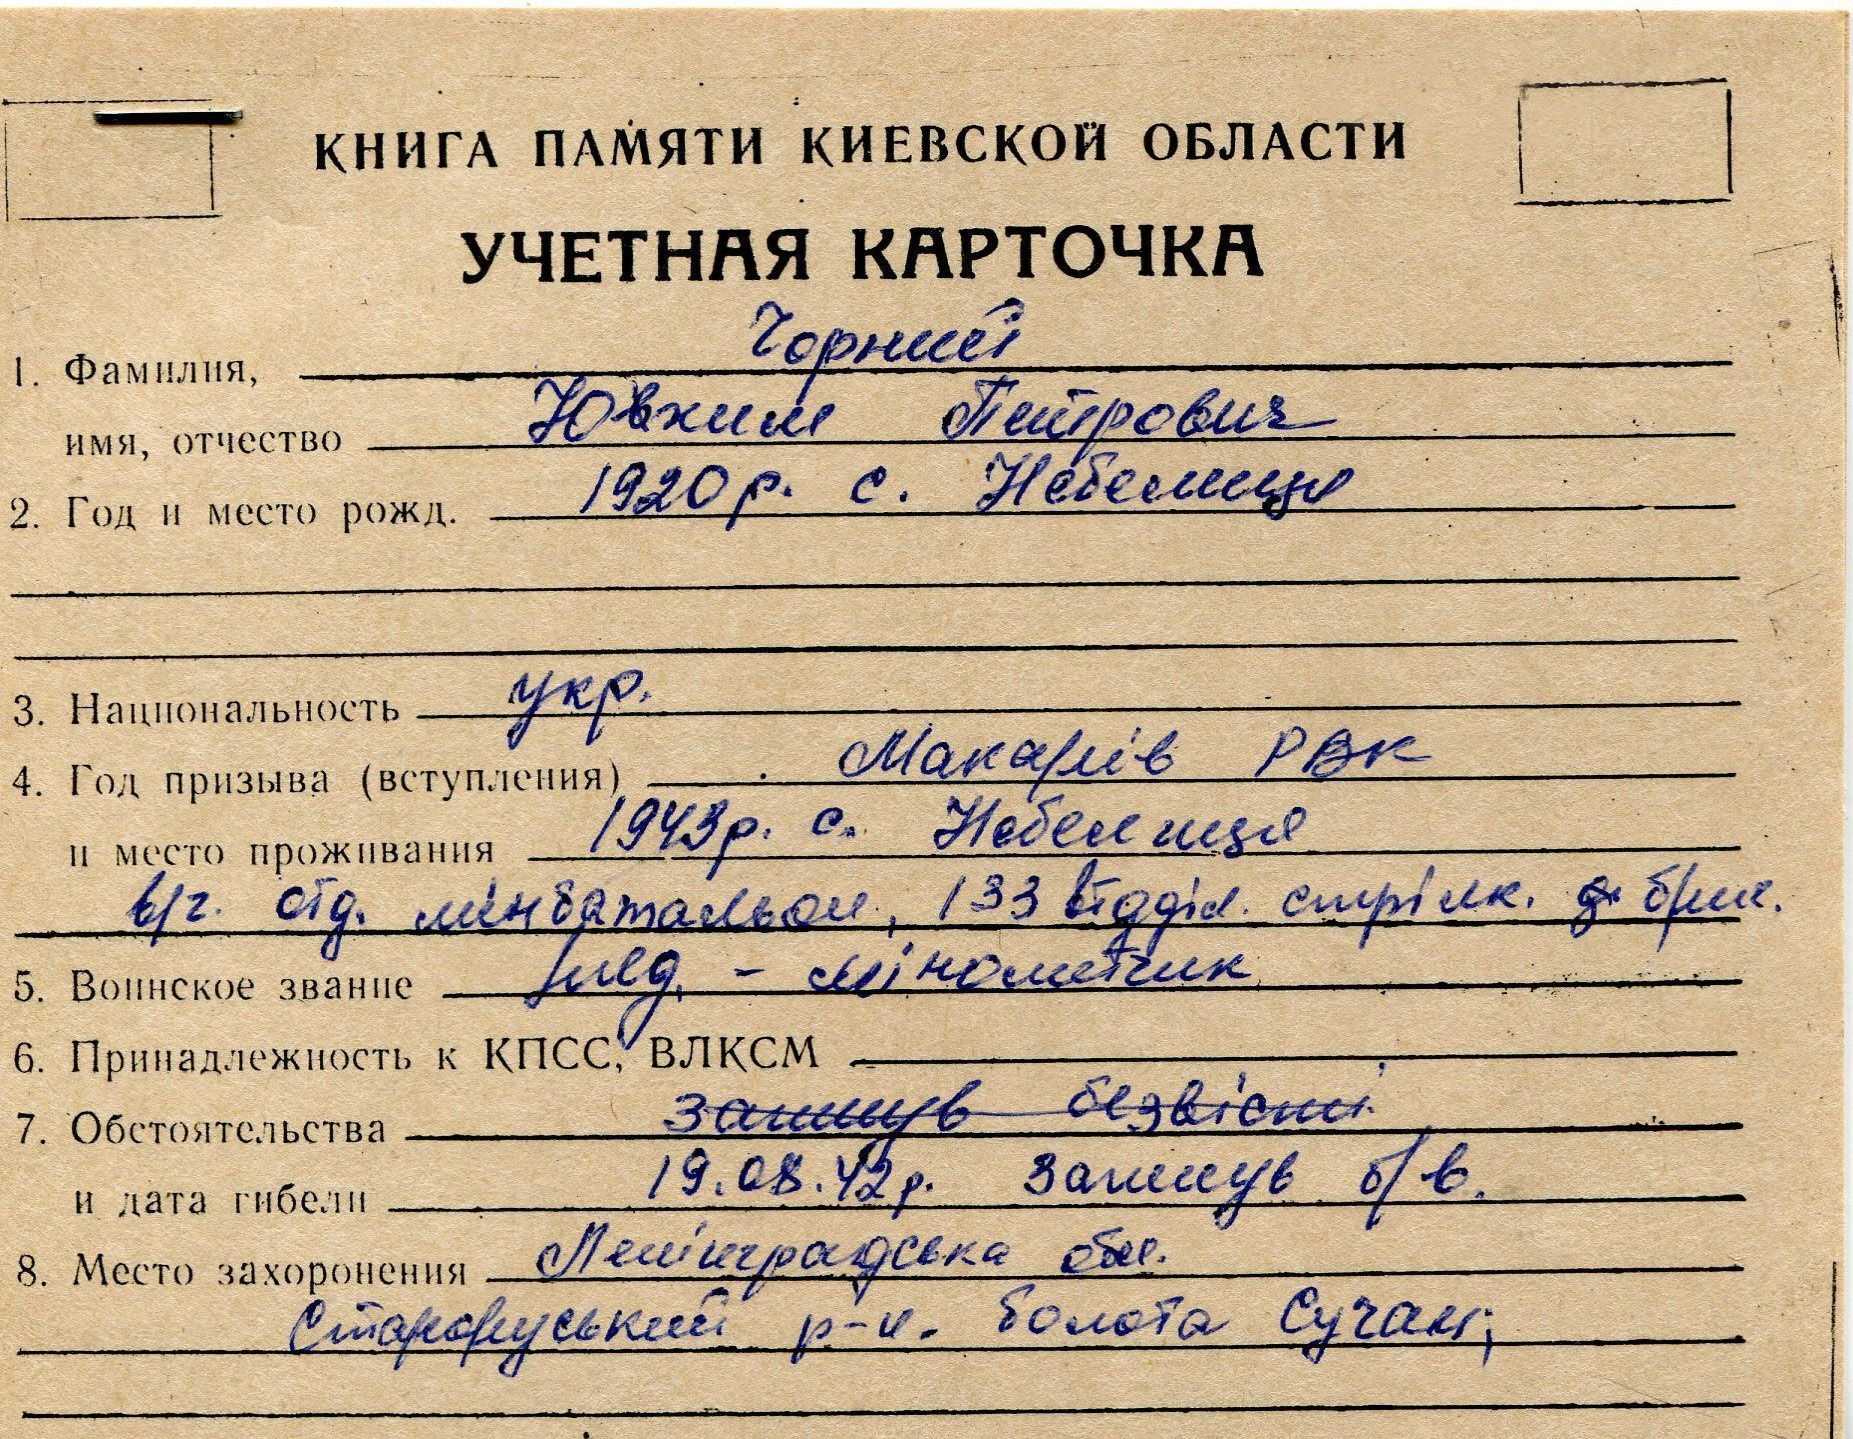 КНИГА ПАМЯТИ КИЕВСКОЙ ОБЛАСТИ
УЧЕТНАЯ КАРТОЧКА
1. Фамилия, Чорний
имя, отчество Ювхим Петрович
2. Год и место рожд. 1920 р. с. Небелиця
3. Национальность укр.
4. Год призыва (вступления) Макарів РВК
и место проживания 1943 р. с. Небелиця
в/ч. отд. мінбатальон, 133 відділ. стрілк. бриг.
5. Воинское звание - мінометчик
6. Принадлежность к КПСС, ВЛКСМ
7. Обстоятельства загинув безвісті
и дата гибели 19.08.42 р. загинув б/в.
8. Место захоронения Ленінградська обл.
Староруський р-н. болота Сучан;